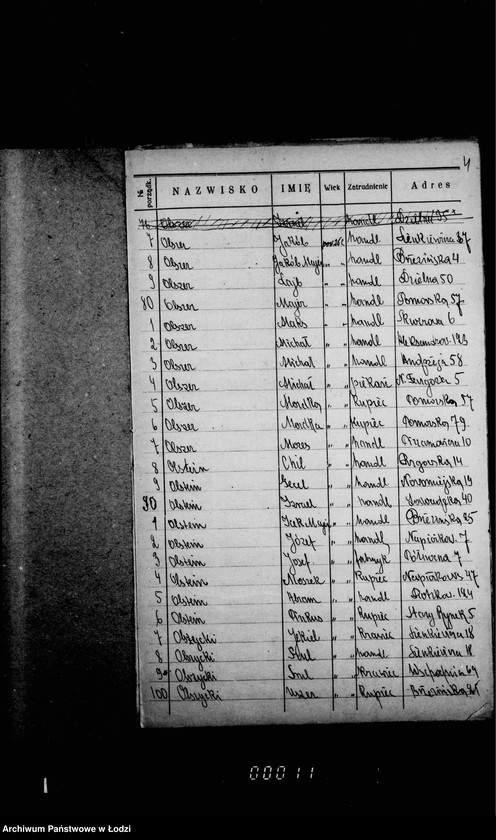 4
№ porządk. NAZWISKO IMIĘ Wiek Zatrudnienie Adres
76 Obszer handl Dzielna 35
7 Obszer Jakób handl Sienkiewicza 37
8 Obszer Jakób Majer „ „ handl Brzezińska 4
9 Obszer Lajb „ „ handl Dzielna 50
80 Obszer Majer „ „ handl Pomorska 57
1 Obszer Maks „ „ handl Skwerowa 6
2 Obszer Michał „ „ handl Aleksandrow 123
3 Obszer Michał „ „ handl Andrzeja 58
4 Obszer Michał „ „ piekarz N. Targowa 5
5 Obszer Mordka „ „ Kupiec Pomorska 57
6 Obszer Mordka „ „ Kupiec Pomorska 79
7 Obszer Moszes „ „ handl 10
8 Olsztein Chil „ „ handl 14
9 Olsztein Gecel „ „ handl Nowomiejska 19
90 Olsztein Izrael „ „ handl Zawadzka 40
1 Olsztein Icek Majer „ „ handl Brzezińska 35
2 Olsztein Józef „ „ handl Napiórkow. 7
3 Olsztein Josef „ „ fabryk Północna 7
4 Olsztein Moszek „ „ Kupiec Napiórkows 47
5 Olsztein Abram „ „ handl
6 Olsztein Pinkus „ „ Kupiec Stary Rynek 5
7 Olszycki Jekiel „ „ Krawiec Sienkiewicza 18
8 Olszycki Szul „ „ handl Sienkiewicza 18
9 Olszycki Szul „ „ Krawiec Wschodnia 69
100 Olszycki Uszer „ „ Kupiec Brzezińska
00011
Archiwum Państwowe w Łodzi